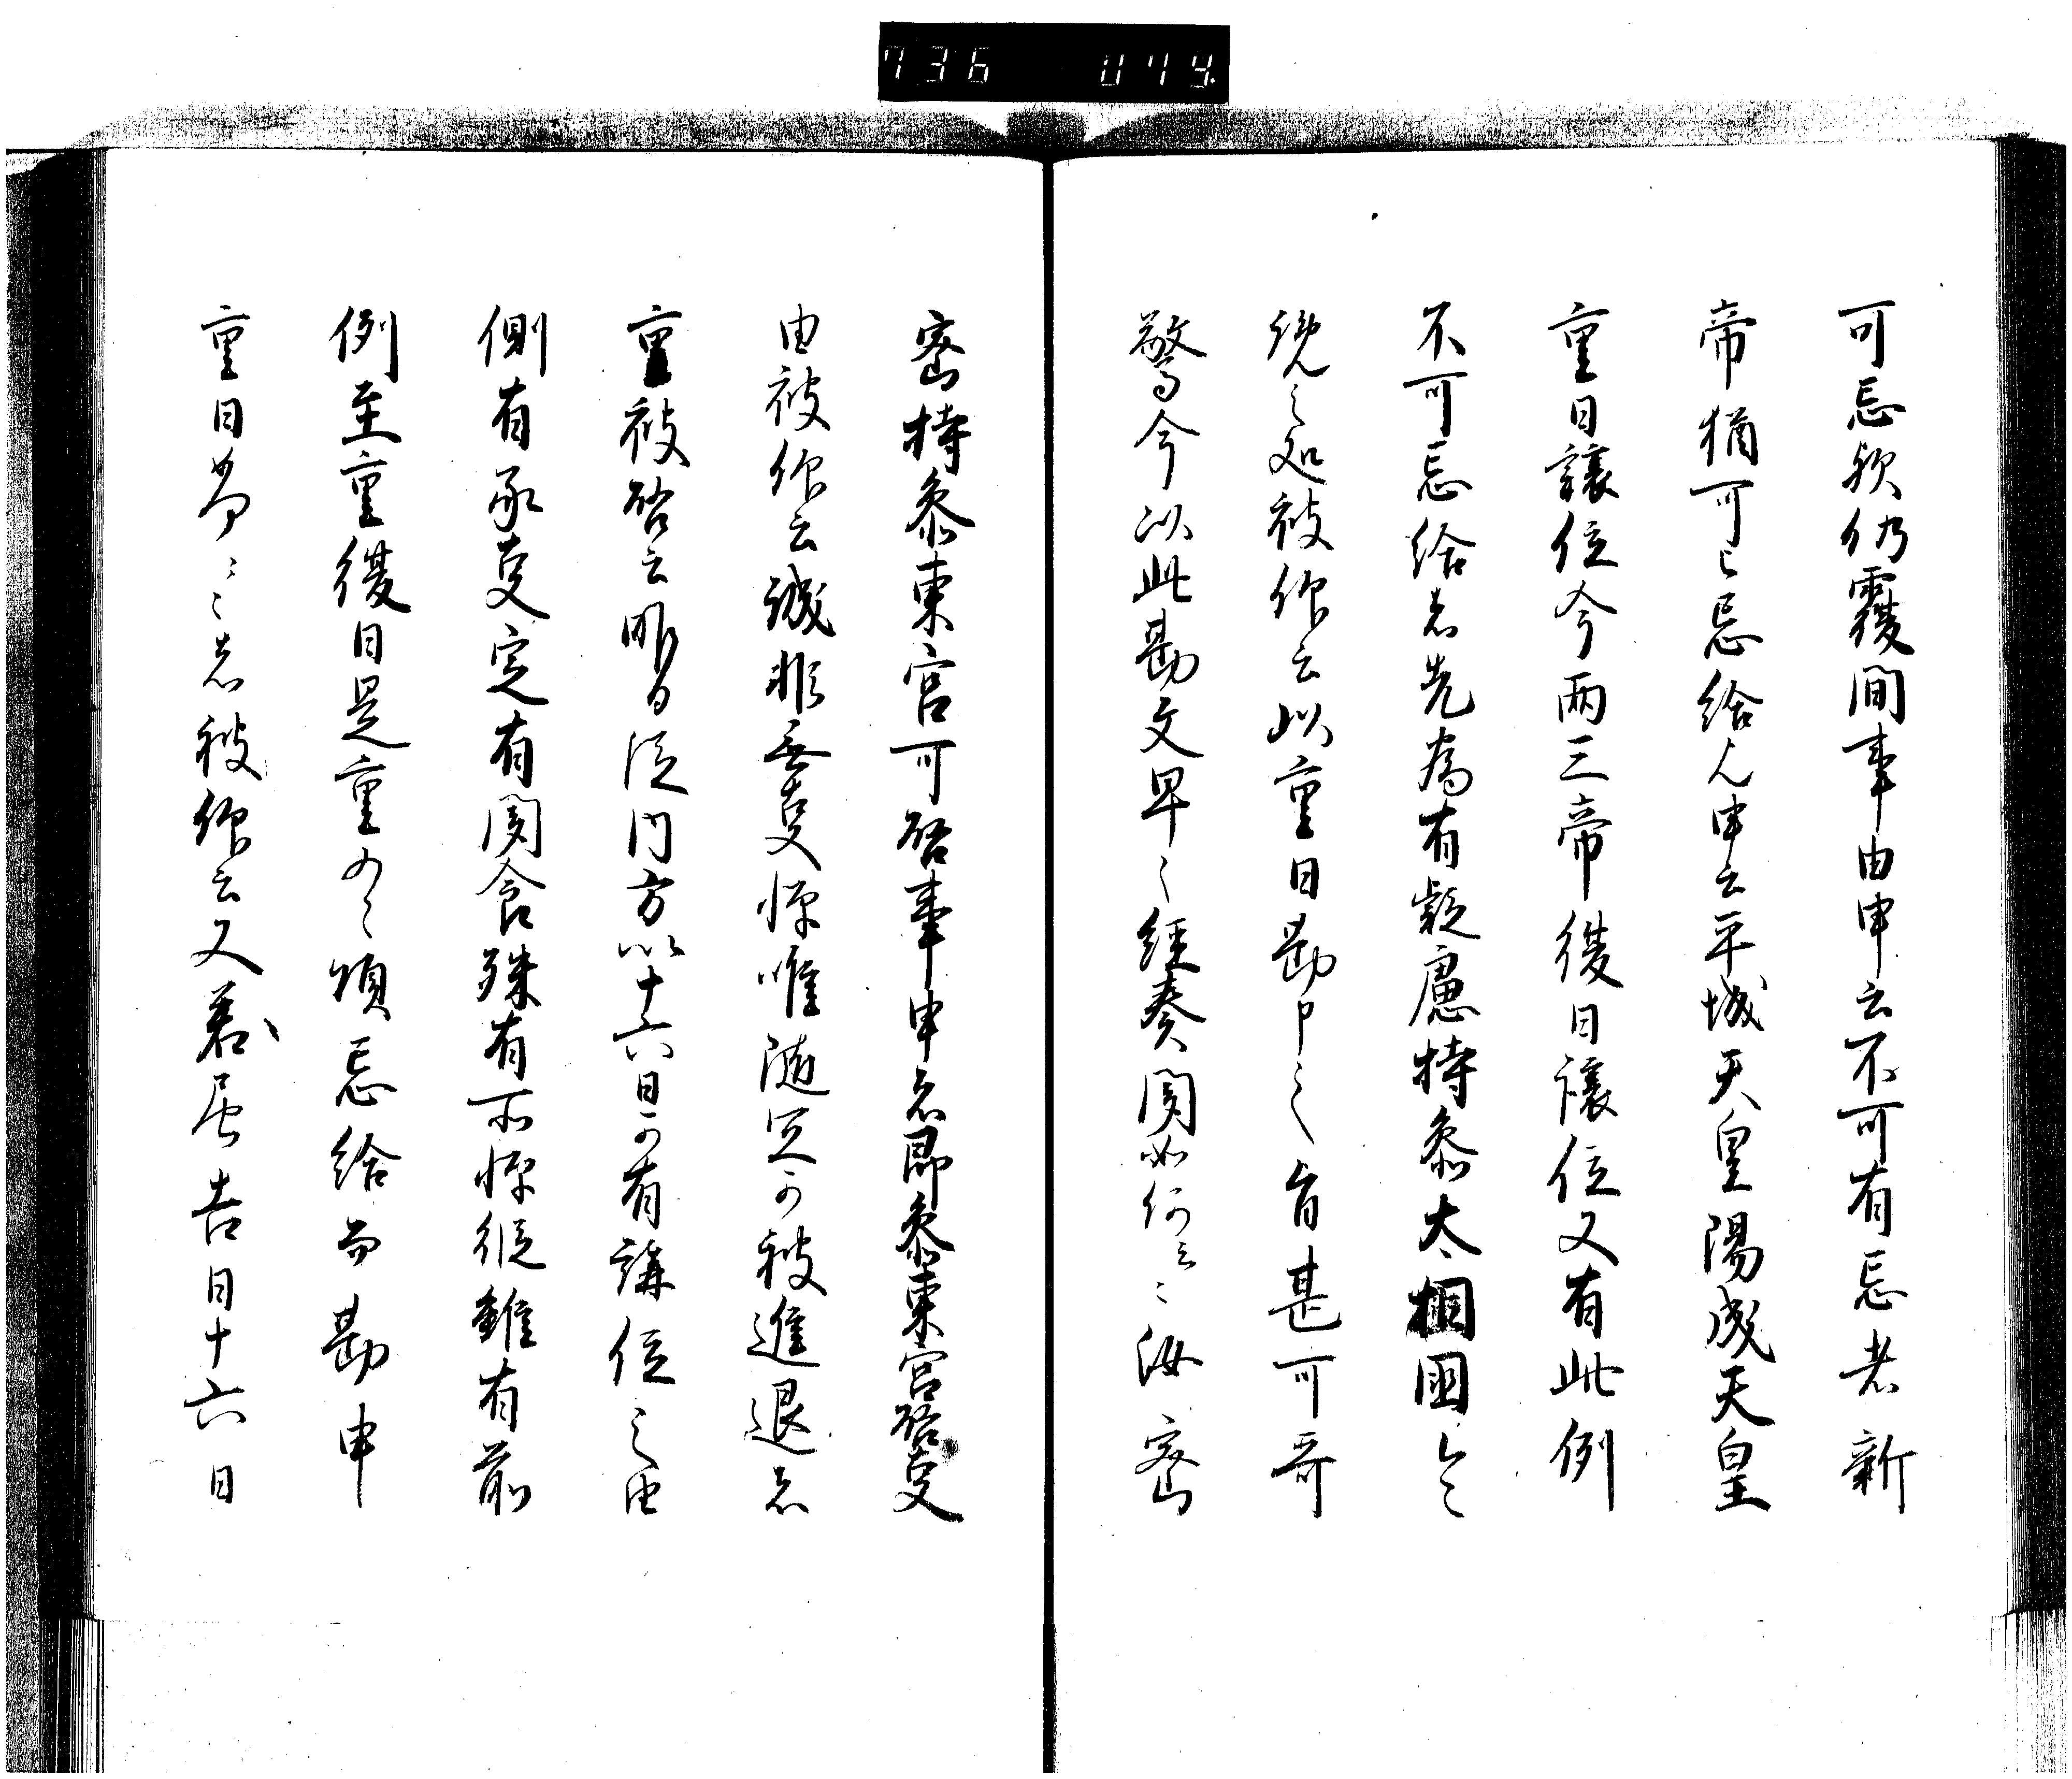 736 074
可忌欤仍覆間事由申云不可有忌者新
帝猶可已忌給也申云平城天皇陽成天皇
重日譲位今両三帝復日譲位又有此例
不可忌給者先為有疑慮持参太相国令
覧之処被仰云以重日勘申之旨甚可奇
驚今以此勘文早々経奏聞如何云々汝密
密持参東宮可啓事申者即参東宮啓事
由被仰云誠非無事憚唯随宜可被進退者
重被啓云昨日従内方以十六日可有譲位之由
側有承事定有聞食殊有所憚従雖有前
例至重復日是重日也須忌給而勘申
重日等云々者被仰云又若居吉日十六日